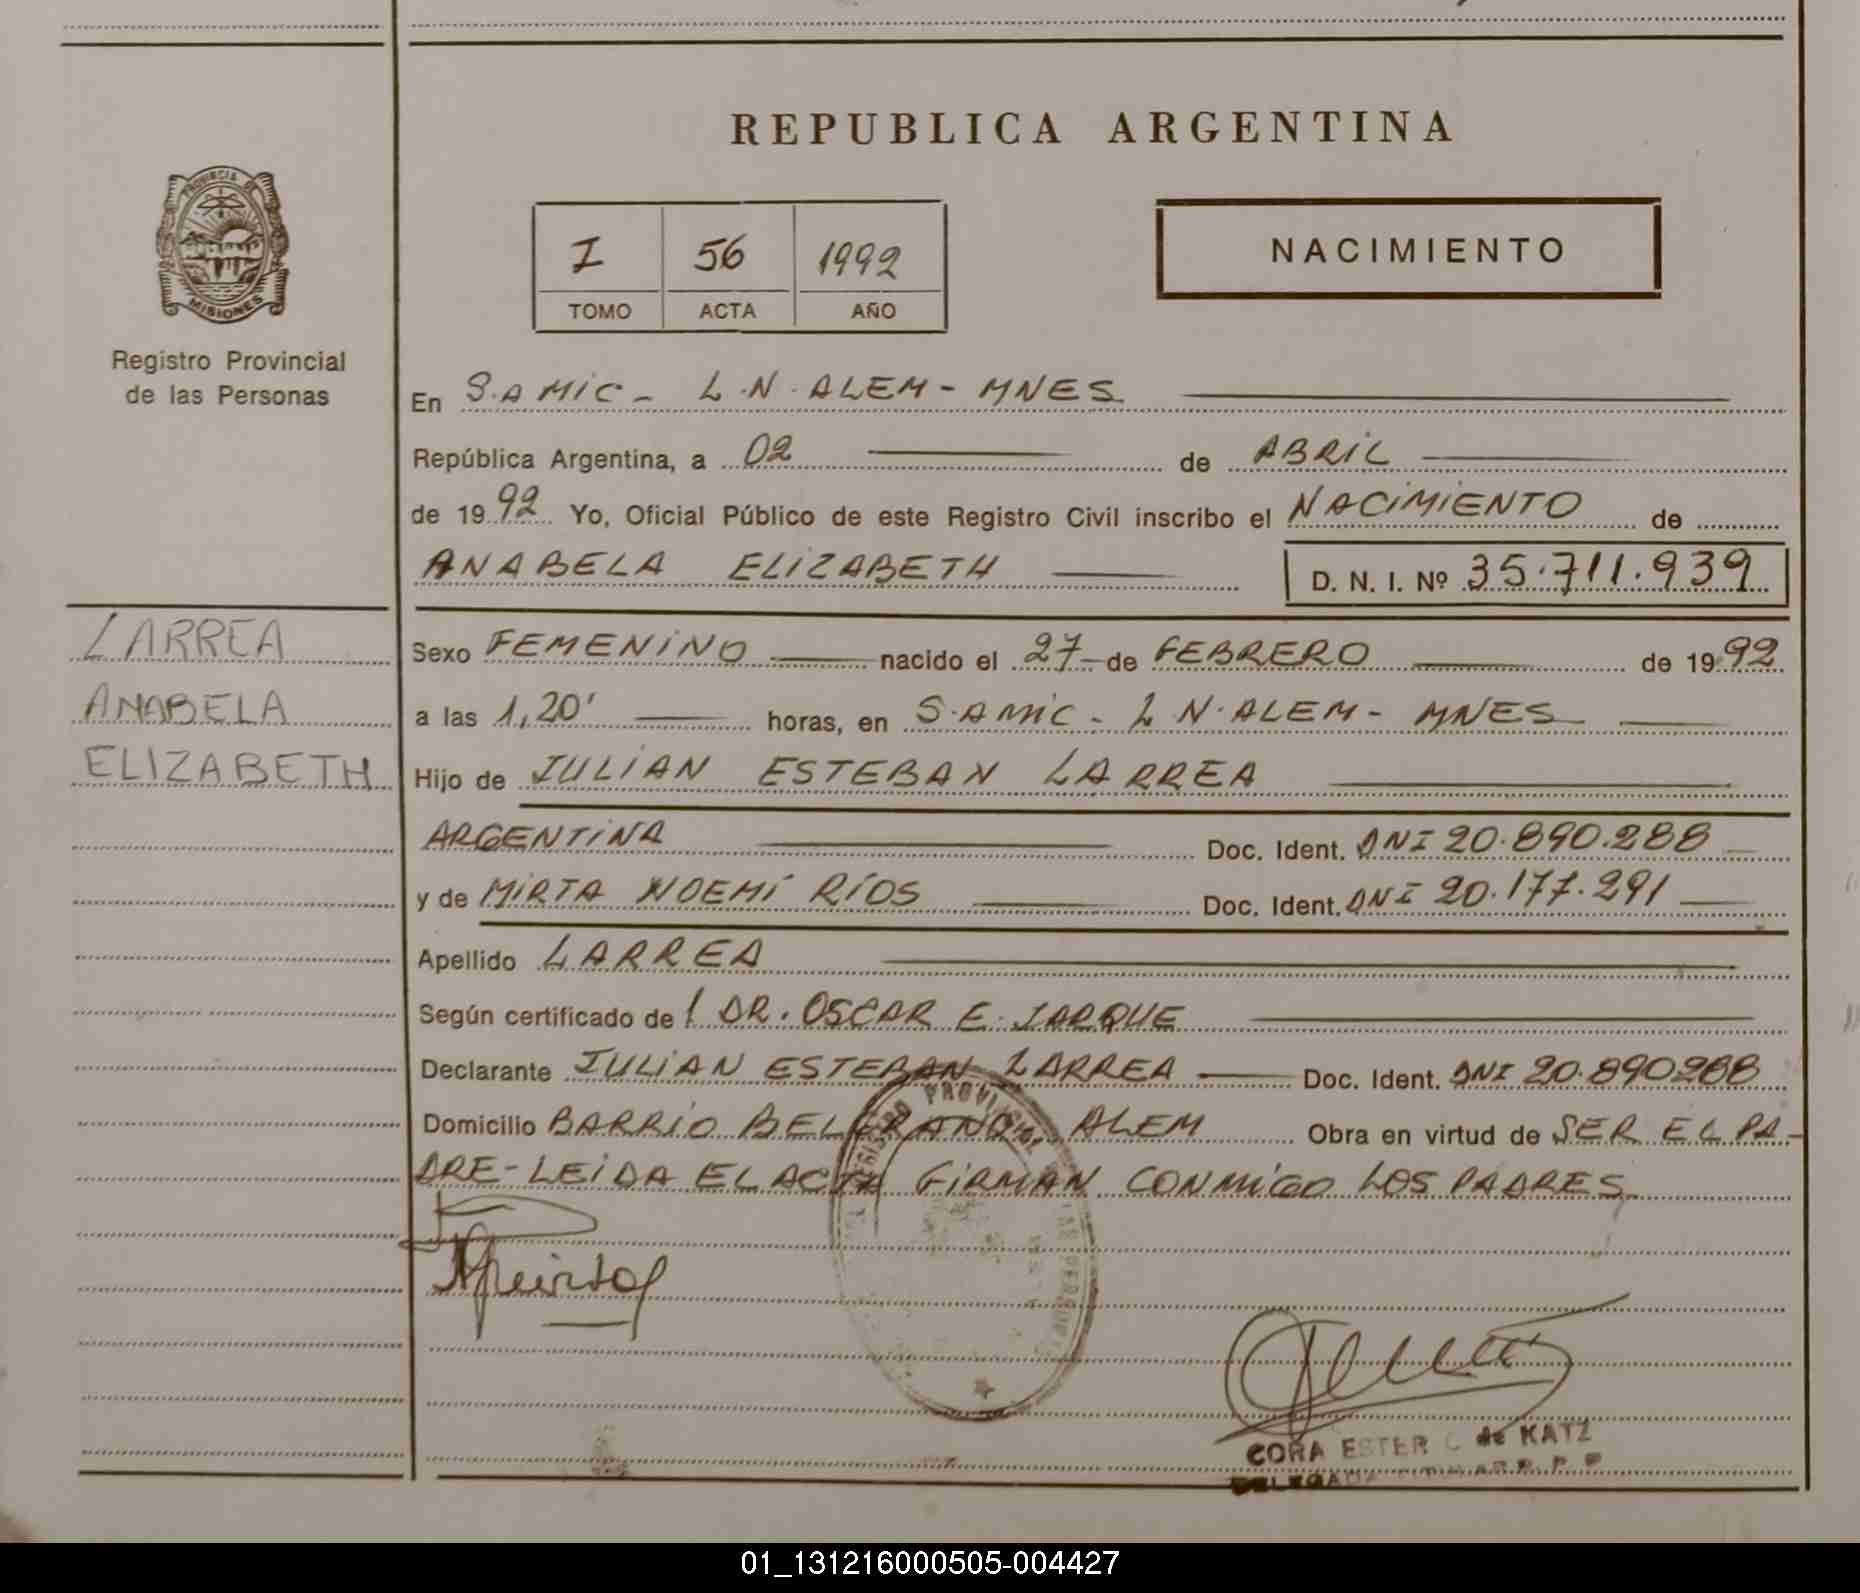 REPUBLICA ARGENTINA
PROVINCIA DE
MISIONES
Registro Provincial
de las Personas
I 56 1992
TOMO ACTA AÑO
NACIMIENTO
En S.AMIC - L.N.ALEM - MNES
República Argentina, a 02 de ABRIL
de 1992 Yo, Oficial Público de este Registro Civil inscribo el NACIMIENTO de
ANABELA ELIZABETH D. N. I. Nº 35.711.939
LARREA
ANABELA
ELIZABETH
Sexo FEMENINO nacido el 27 de FEBRERO de 1992
a las 1,20' horas, en S.AMIC - L.N.ALEM - MNES
Hijo de JULIAN ESTEBAN LARREA
ARGENTINA Doc. Ident. DNI 20.890.288
y de MIRTA NOEMÍ RÍOS Doc. Ident. DNI 20.177.291
Apellido LARREA
Según certificado de l DR. OSCAR E. JARQUE
Declarante JULIAN ESTEBAN LARREA Doc. Ident. DNI 20.890288
Domicilio BARRIO BELGRANO ALEM Obra en virtud de SER EL PA-
DRE - LEIDA EL ACTA FIRMAN CONMIGO LOS PADRES
CORA ESTER de KATZ
01_131216000505-004427